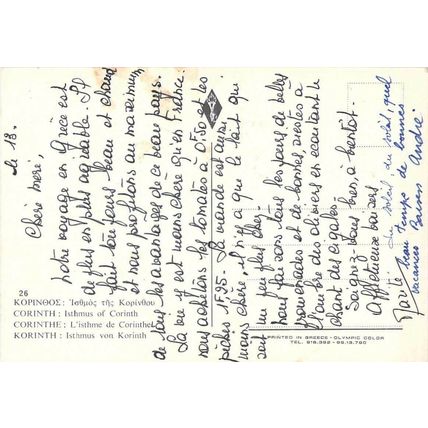 le 13.
Chère mère,
Notre voyage en Grèce est
de plus en plus agréable. Il
fait toujours beau et chaud
et nous profitons au maximum
de tous les avantages de ce beau pays.
La vie y est moins chère qu'en France.
nous achetons les tomates à 0,50 et les
pêches 1F,95. La viande est aussi
moins chère, il n'y a que le lait qui
soit un peu plus cher.
Nous faisons tous les jours de belles
promenades et de bonnes siestes à
l'ombre des oliviers en écoutant le
chant des cigales.
Soignez-vous bien, à bientôt.
Affectueux baisers
Du soleil, du soleil, quel
beau temps de bonnes
vacances Baisers André
26
ΚΟΡΙΝΘΟΣ: Ἰσθμὸς τῆς Κορίνθου
CORINTH: Isthmus of Corinth
CORINTHE: L'isthme de Corinthe
KORINTH: Isthmus von Korinth
PRINTED IN GREECE - OLYMPIC COLOR